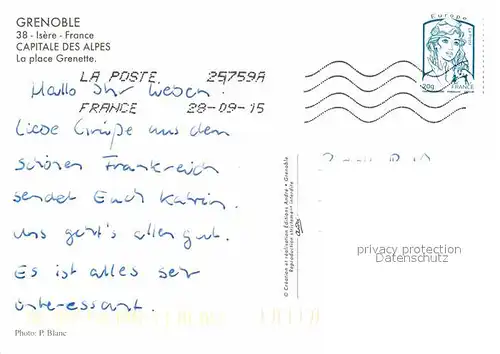 GRENOBLE
38 - Isère - France
CAPITALE DES ALPES
La place Grenette.
Europe
20g
FRANCE
LA POSTE 25759A
FRANCE 28-09-15
Hallo Ihr Lieben!
Liebe Grüße aus dem
schönen Frankreich
sendet Euch Katrin.
Uns geht's allen gut.
Es ist alles sehr
interessant.
© Création et réalisation Éditions André • Grenoble
Reproduction strictement interdite
privacy protection
Datenschutz
Photo: P. Blanc